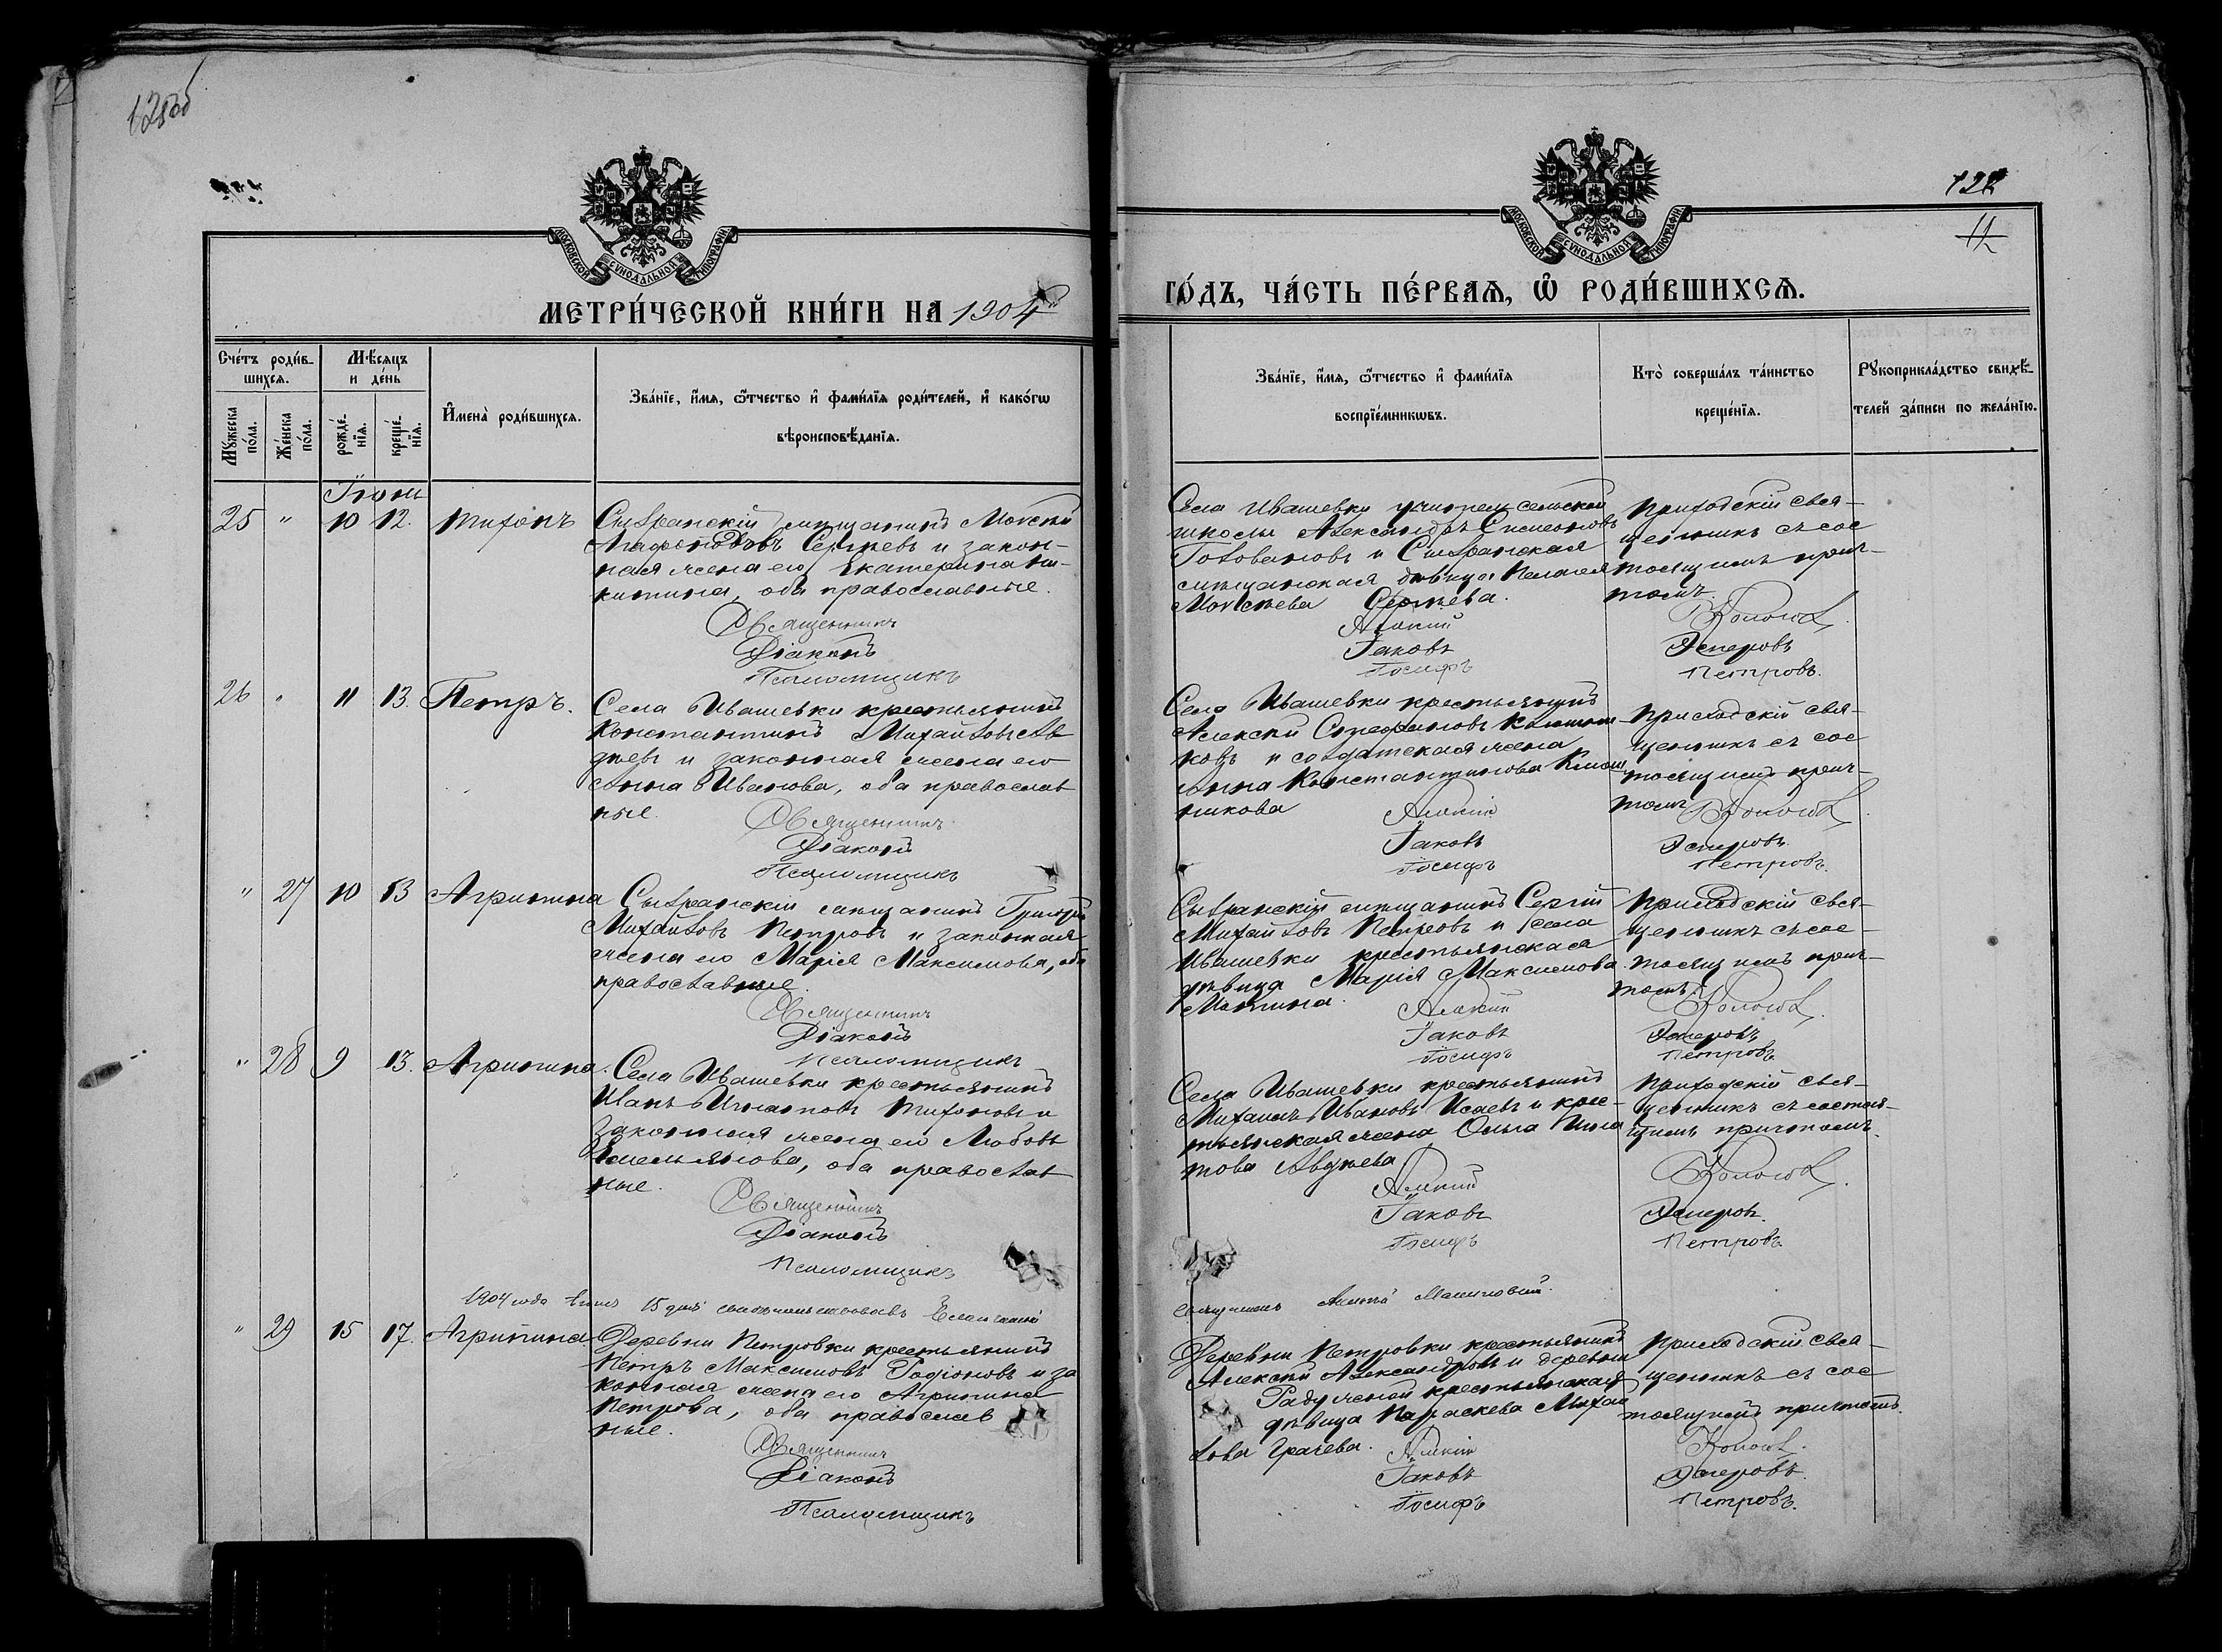 128об
МОСКОВСКОЙ СУНОДАЛЬНОЙ ТИПОГРАФИИ
МЕТРИ́ЧЕСКОЙ КНИ́ГИ НА 1904й
Сче́тъ роди́в-
шихсѧ.
Мѣсѧцъ
и де́нь
Мꙋжеска
по́ла.
Же́нска
по́ла.
рожде́-
нїѧ.
креще́-
нїѧ.
И҆мена̀ роди́вшихсѧ.
Зва́нїе, и҆́мѧ, ѻ҆́тчество и҆ фами́лїѧ роди́телей, и҆ како́гѡ
вѣроисповѣ́данїѧ.
Iюнь
25 " 10 12. Тихонъ
Сызранскій мѣщанинъ Моисей
Агафоновъ Сергѣевъ и закон-
ная жена его Екатерина Ни-
китина, оба православные.
Священникъ
Діаконъ
Псаломщикъ
26 " 11 13. Петръ.
Села Ивашевки крестьянинъ
Константинъ Михайловъ Ав
дѣевъ и законная жена его
Анна Иванова, оба православ
ные.
Священникъ
Діаконъ
Псаломщикъ
" 27 10 13 Агрипина
Сызранскій мѣщанинъ Григорій
Михайловъ Петровъ и законная
жена его Марія Максимова, оба
православные.
Священникъ
Діаконъ
Псаломщикъ
" 28 9 13. Агрипина.
Села Ивашевки крестьянинъ
Иванъ Игнатовъ Тихоновъ и
законная жена его Любовь
Емельянова, оба православ
ные.
Священникъ
Діаконъ
Псаломщикъ
1904 года 15 дня свидѣтельствовавъ
" 29 15 17. Агрипина.
Деревни Петровки крестьянинъ
Петръ Максимовъ Родіоновъ и за
конная жена его Агрипина
Петрова, оба православ
ные.
Священникъ
Діаконъ
Псаломщикъ
МОСКОВСКОЙ СУНОДАЛЬНОЙ ТИПОГРАФИИ
11
ГО́ДЪ, ЧА́СТЬ ПЕ́РВАѦ, Ѽ РОДИ́ВШИХСѦ.
Зва́нїе, и҆́мѧ, ѻ҆́тчество и҆ фами́лїѧ
воспрїе́мникѡвъ.
Кто̀ соверша́лъ та́инство
креще́нїѧ.
Рꙋкоприкла́дство свидѣ́-
телей за́писи по жела́нїю.
Села Ивашевки учитель сельской
школы Александръ Симеоновъ
Головановъ и Сызранская
мѣщанская дѣвица Пелагея
Моисѣева Сергѣева.
Алексій
Іаковъ
Іосифъ
Приходскій свя-
щенникъ съ сос
тоящимъ прич-
томъ.
Петровъ.
Села Ивашевки крестьянинъ
Алексѣй Стефановъ
ковъ и солдатская жена
Анна Константинова
никова
Алексій
Іаковъ
Іосифъ
Приходскій свя-
щенникъ съ сос
тоящимъ прич-
томъ
Петровъ.
Сызранскій мѣщанинъ Сергій
Михайловъ Петровъ и села
Ивашевки крестьянская
дѣвица Марія Максимова
Алексій
Іаковъ
Іосифъ
Приходскій свя-
щенникъ съ сос-
тоящимъ прич-
томъ.
Петровъ
Села Ивашевки крестьянинъ
Михаилъ Ивановъ Исаевъ и крес-
тьянская жена Ольга Игна
това Авдѣева
Алексій
Іаковъ
Іосифъ
Приходскій свя-
щенникъ съ состоя-
щимъ причтомъ.
Петровъ
Деревни Петровки крестьянинъ
Алексѣй Александровъ и деревни
крестьянская
дѣвица Параскева Михай
лова Грачева.
Алексій
Іаковъ
Іосифъ
Приходскій свя-
щенникъ съ сос
тоящимъ причтомъ.
Петровъ.